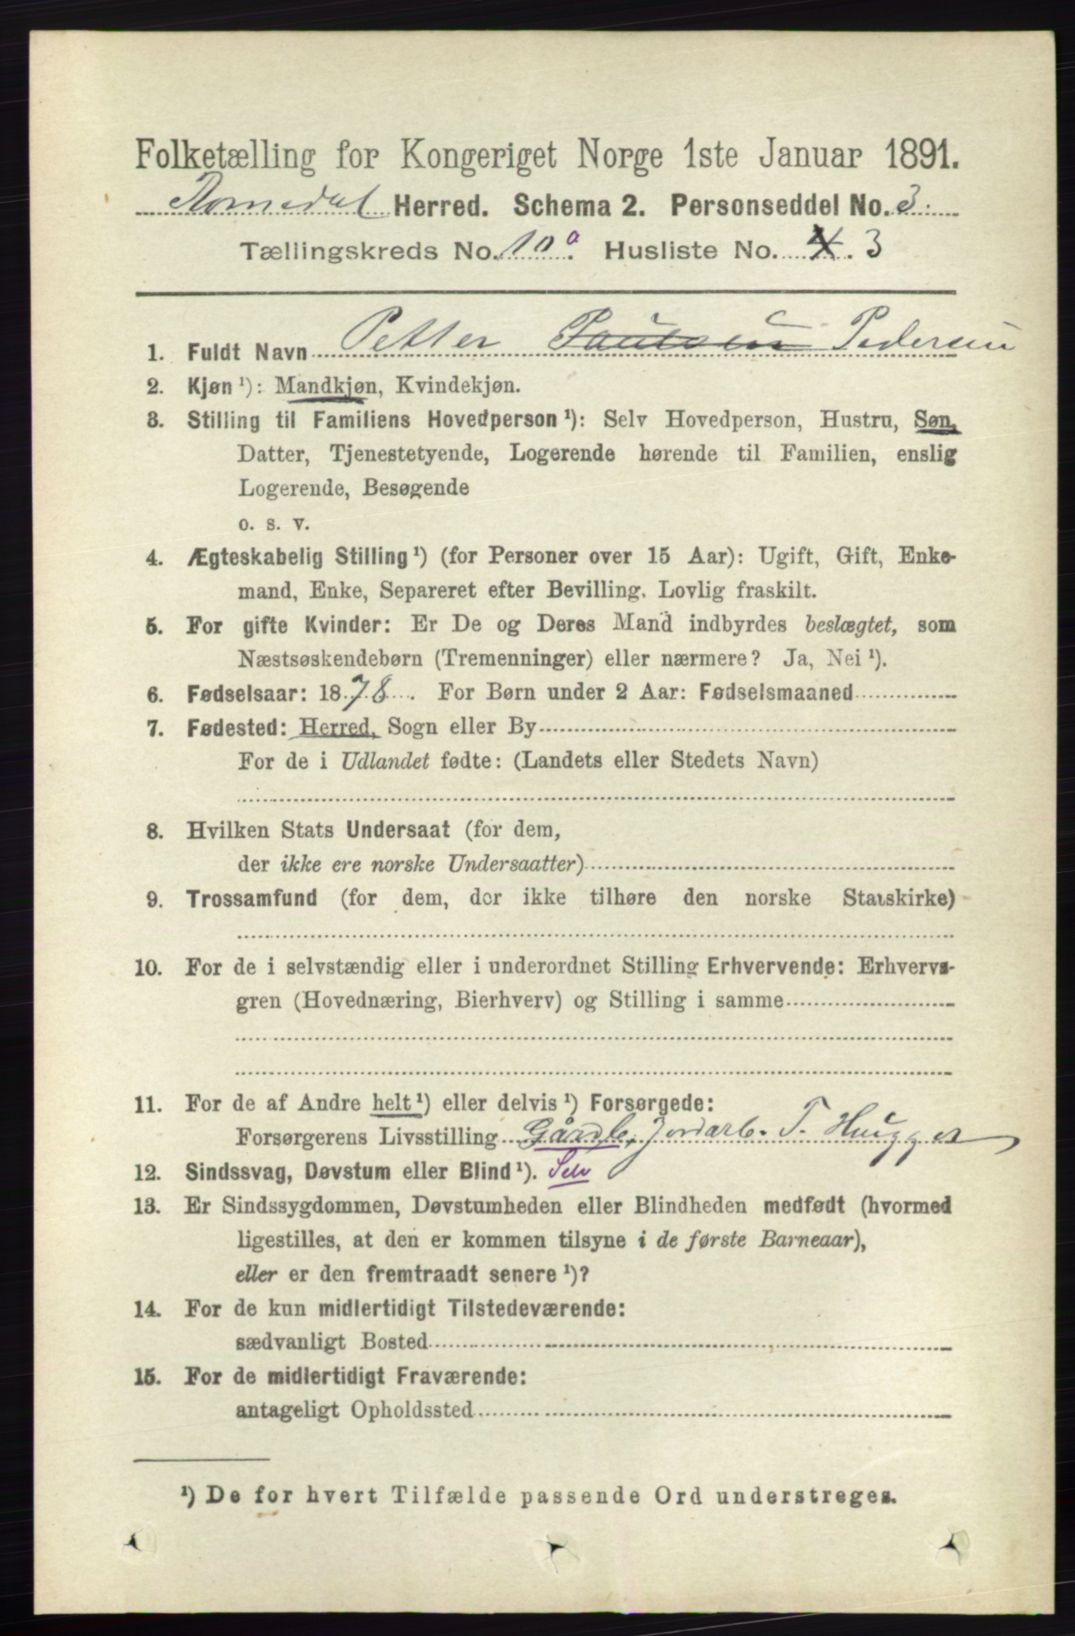 Folketælling for Kongeriget Norge 1ste Januar 1891.
Romedal Herred. Schema 2. Personseddel No. 3.
Tællingskreds No. 10a. Husliste No. 4. 3
1. Fuldt Navn Petter Paulsen Pedersen
2. Kjøn ¹): Mandkjøn, Kvindekjøn.
3. Stilling til Familiens Hovedperson ¹): Selv Hovedperson, Hustru, Søn,
Datter, Tjenestetyende, Logerende hørende til Familien, enslig
Logerende, Besøgende
o. s. v.
4. Ægteskabelig Stilling ¹) (for Personer over 15 Aar): Ugift, Gift, Enke-
mand, Enke, Separeret efter Bevilling. Lovlig fraskilt.
5. For gifte Kvinder: Er De og Deres Mand indbyrdes beslægtet, som
Næstsøskendebørn (Tremenninger) eller nærmere? Ja, Nei ¹).
6. Fødselsaar: 1878. For Børn under 2 Aar: Fødselsmaaned
7. Fødested: Herred, Sogn eller By
For de i Udlandet fødte: (Landets eller Stedets Navn)
8. Hvilken Stats Undersaat (for dem,
der ikke ere norske Undersaatter)
9. Trossamfund (for dem, der ikke tilhøre den norske Statskirke)
10. For de i selvstændig eller i underordnet Stilling Erhvervende: Erhvervs-
gren (Hovednæring, Bierhverv) og Stilling i samme
11. For de af Andre helt ¹) eller delvis ¹) Forsørgede:
Forsørgerens Livsstilling Gårdb. Jordarb. T. Hugger
12. Sindssvag, Døvstum eller Blind ¹). Selv
13. Er Sindssygdommen, Døvstumheden eller Blindheden medfødt (hvormed
ligestilles, at den er kommen tilsyne i de første Barneaar),
eller er den fremtraadt senere ¹)?
14. For de kun midlertidigt Tilstedeværende:
sædvanligt Bosted
15. For de midlertidigt Fraværende:
antageligt Opholdssted
¹) De for hvert Tilfælde passende Ord understreges.